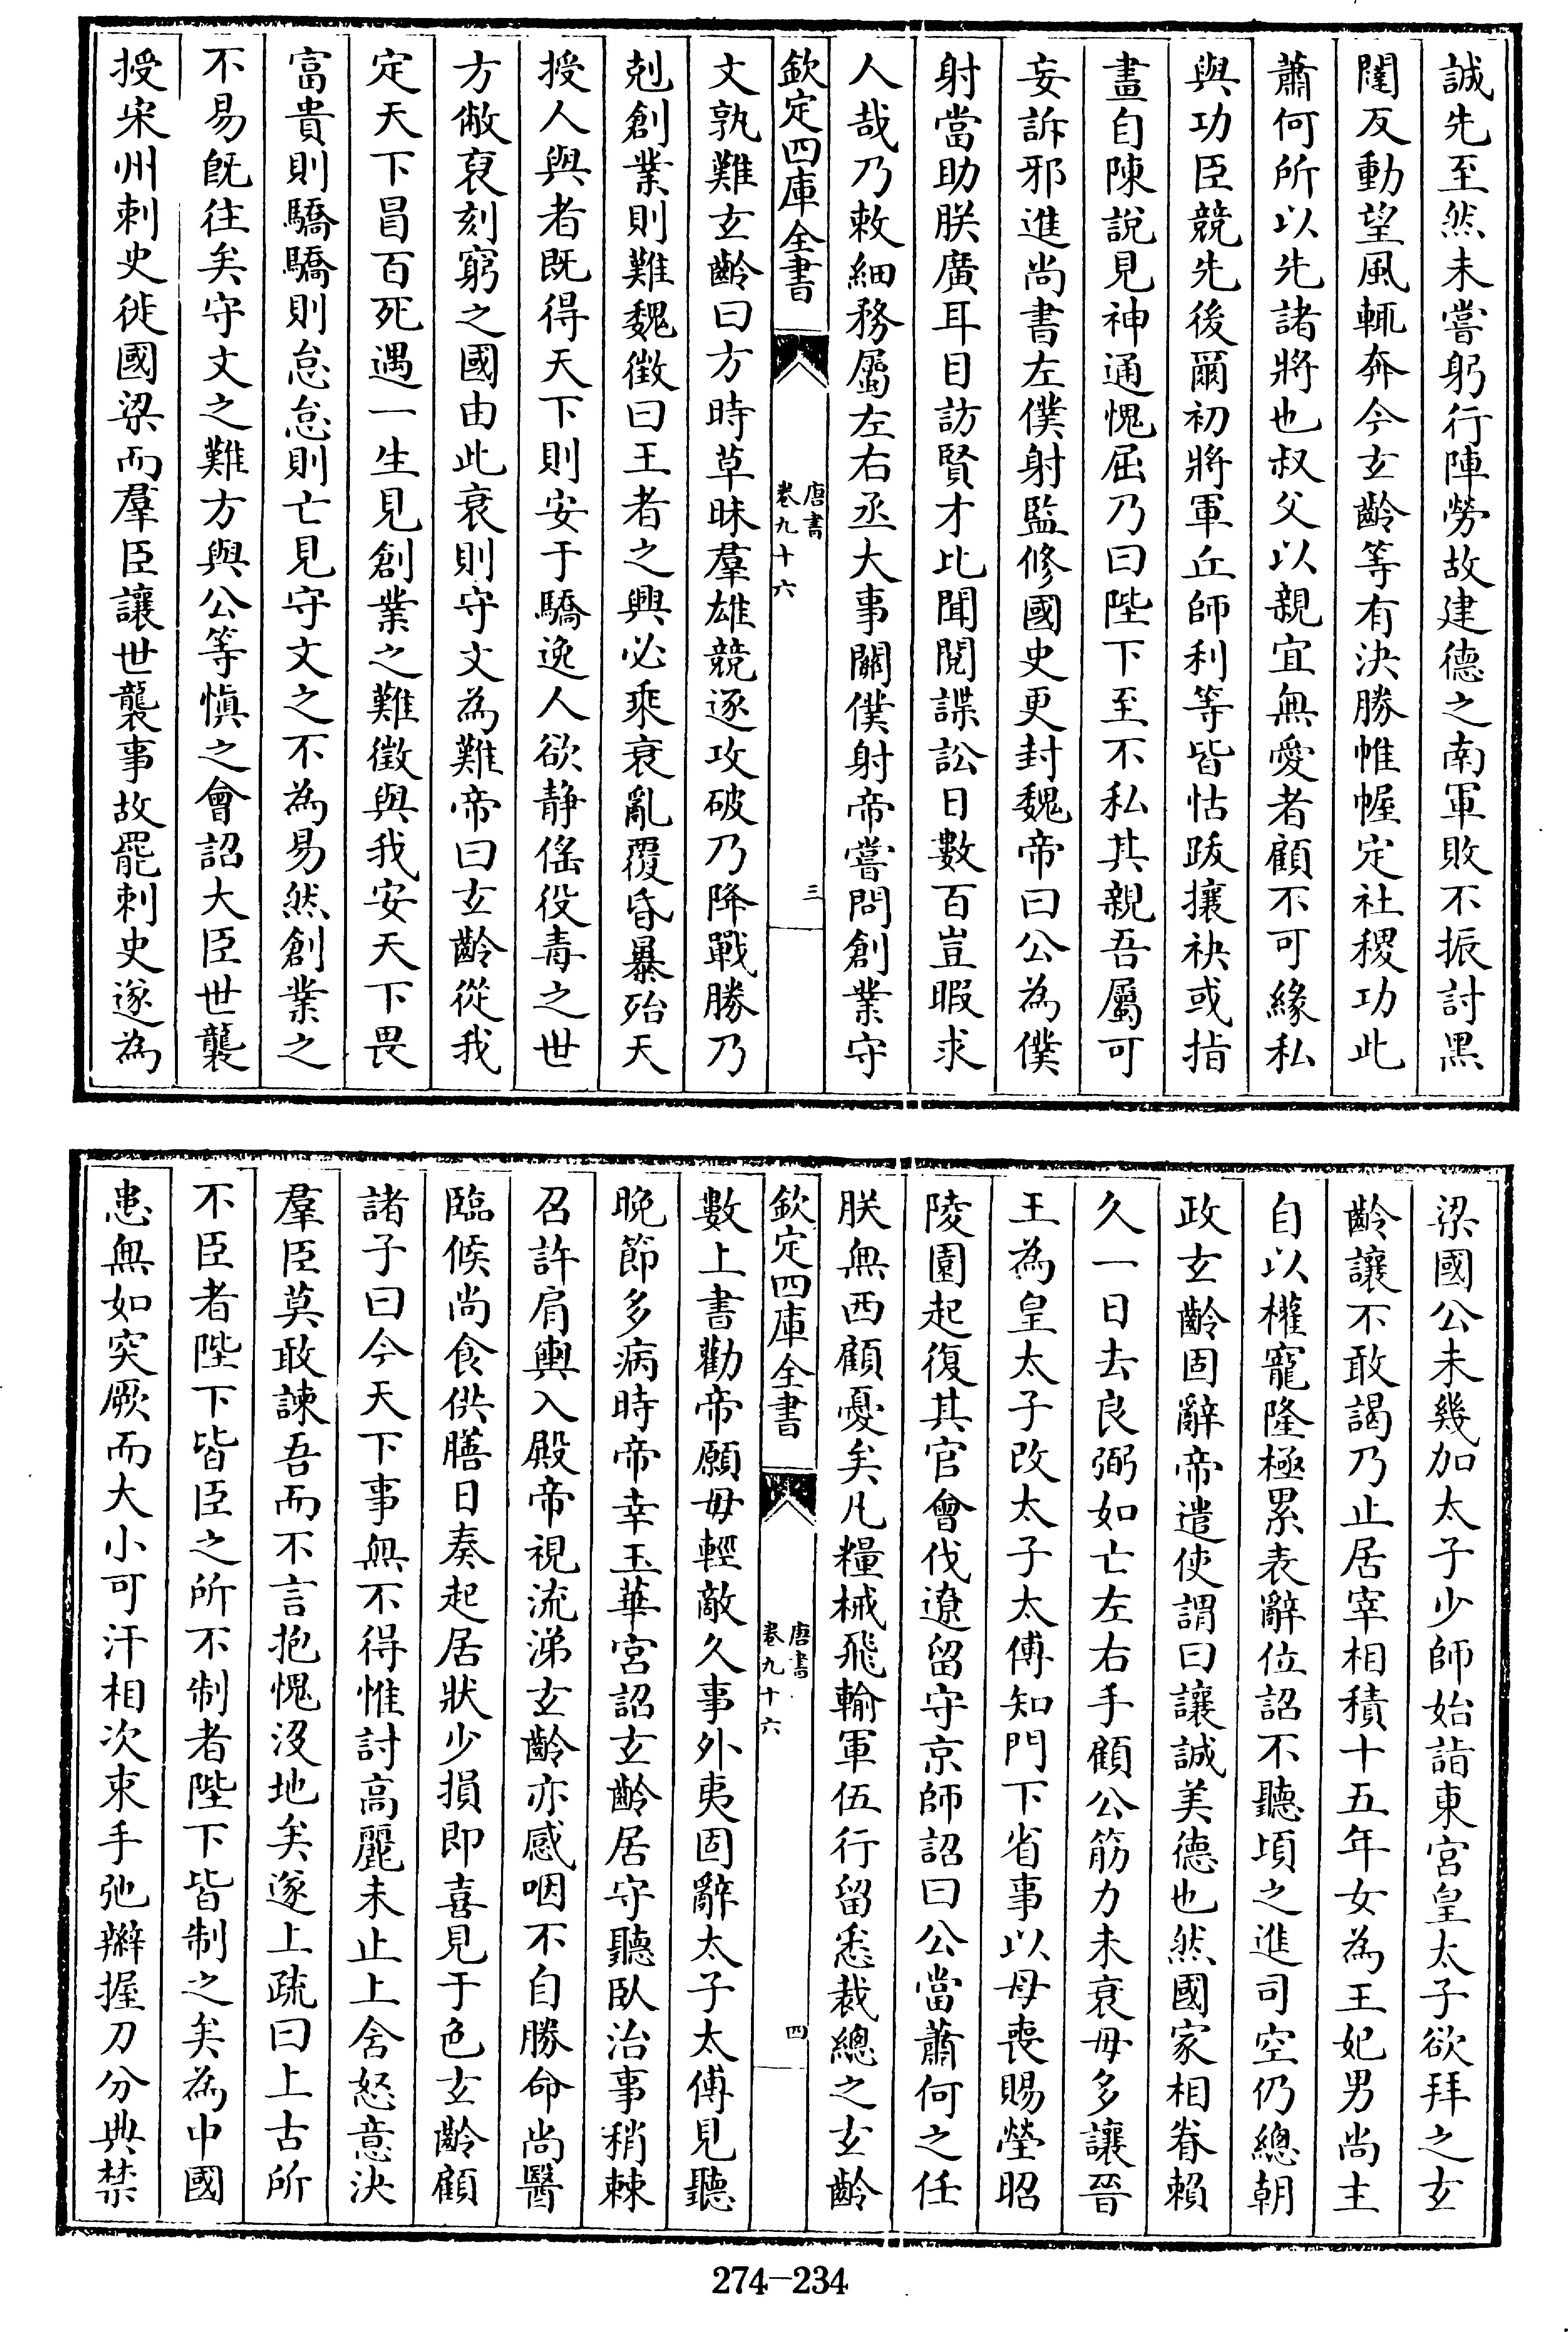 誠先至然未嘗躬行陣勞故建德之南軍敗不振討黑
闥反動望風輒奔今玄齡等有決勝帷幄定社稷功此
蕭何所以先諸將也叔父以親宜無愛者顧不可緣私
與功臣競先後爾初將軍丘師利等皆怙跋攘袂或指
畫自陳說見神通愧屈乃曰陛下至不私其親吾屬可
妄訴邪進尚書左僕射監修國史更封魏帝曰公為僕
射當助朕廣耳目訪賢才比聞閱諜訟日數百豈暇求
人哉乃敕細務屬左右丞大事關僕射帝嘗問創業守
欽定四庫全書
唐書
卷九十六
三
文孰難玄齡曰方時草昧羣雄競逐攻破乃降戰勝乃
剋創業則難魏徵曰王者之興必乘衰亂覆昏暴殆天
授人與者既得天下則安于驕逸人欲静傜役毒之世
方敝裒刻窮之國由此衰則守文為難帝曰玄齡從我
定天下冒百死遇一生見創業之難徵與我安天下畏
富貴則驕驕則怠怠則亡見守文之不為易然創業之
不易既往矣守文之難方與公等慎之會詔大臣世襲
授宋州刺史徙國梁而羣臣讓世襲事故罷刺史遂為
梁國公未幾加太子少師始詣東宮皇太子欲拜之玄
齡讓不敢謁乃止居宰相積十五年女為王妃男尚主
自以權寵隆極累表辭位詔不聽頃之進司空仍總朝
政玄齡固辭帝遣使謂曰讓誠美德也然國家相眷賴
久一日去良弼如亡左右手顧公筋力未衰毋多讓晉
王為皇太子改太子太傅知門下省事以母喪賜塋昭
陵園起復其官會伐遼留守京師詔曰公當蕭何之任
朕無西顧憂矣凡糧械飛輸軍伍行留悉裁總之玄齡
欽定四庫全書
唐書
卷九十六
四
數上書勸帝願毋輕敵久事外夷固辭太子太傅見聽
晚節多病時帝幸玉華宮詔玄齡居守聽臥治事稍棘
召許肩輿入殿帝視流涕玄齡亦感咽不自勝命尚醫
臨候尚食供膳日奏起居狀少損即喜見于色玄齡顧
諸子曰今天下事無不得惟討高麗未止上含怒意決
羣臣莫敢諫吾而不言抱愧沒地矣遂上疏曰上古所
不臣者陛下皆臣之所不制者陛下皆制之矣為中國
患無如突厥而大小可汗相次束手弛辮握刀分典禁
274-234